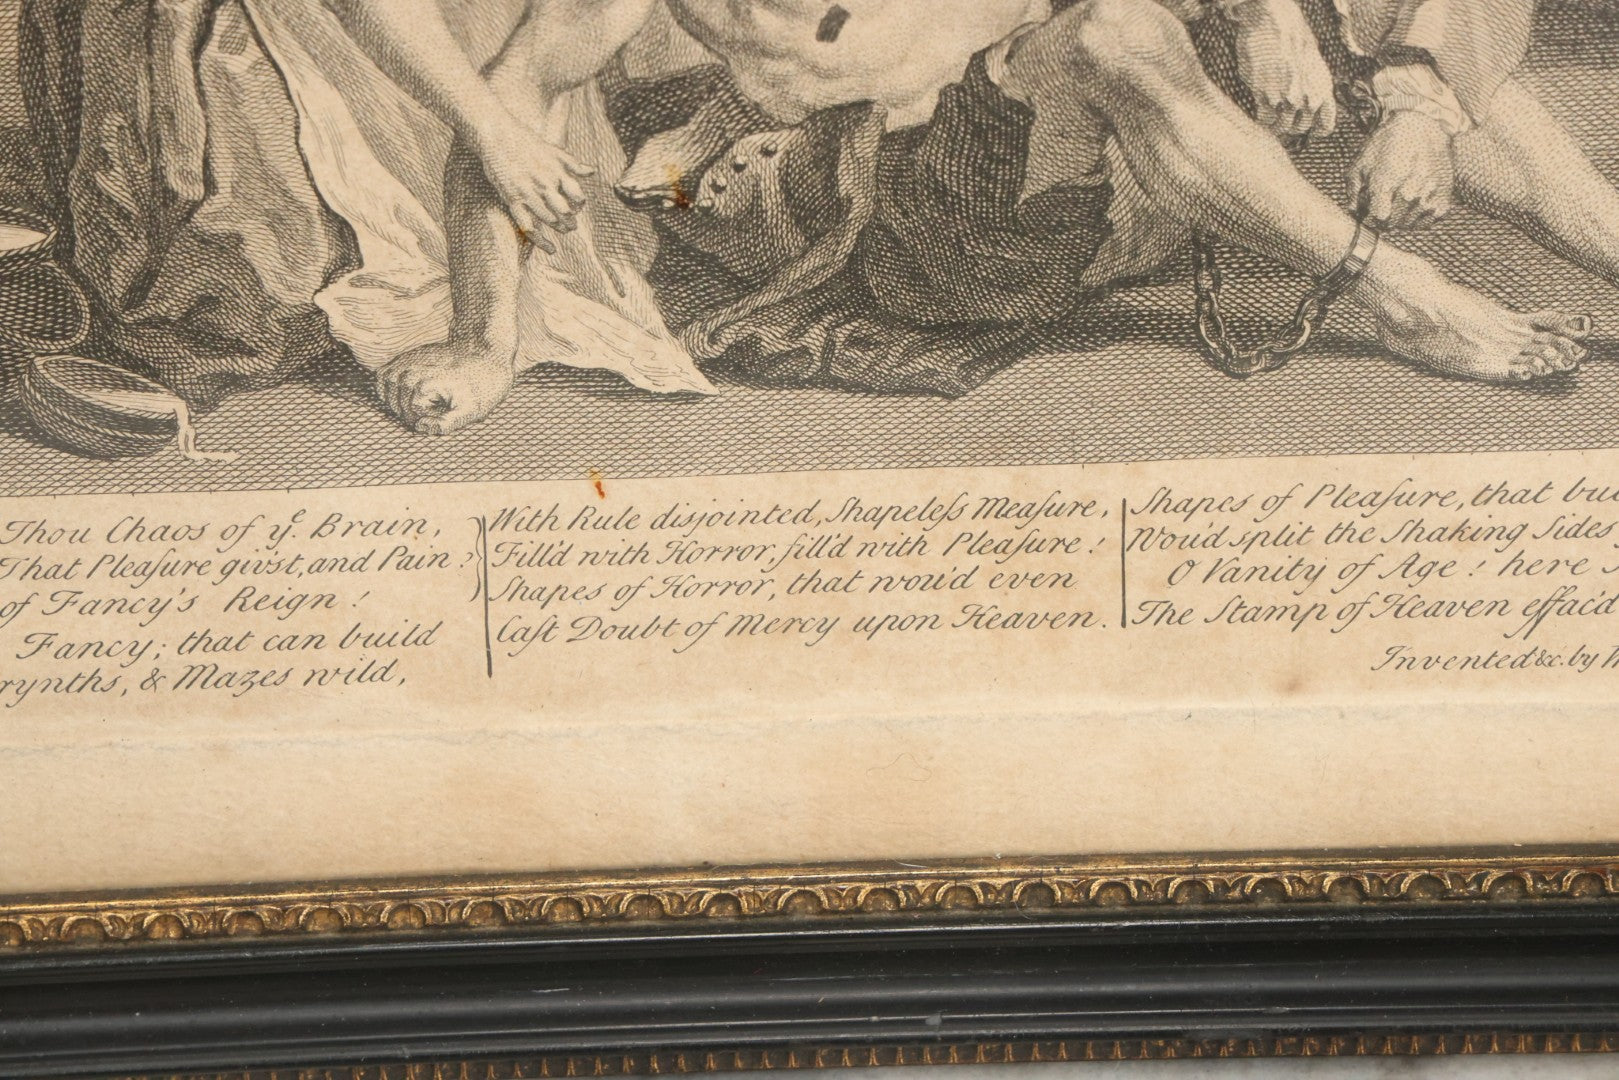 Thou Chaos of yᵉ. Brain,
That Pleaſure giv'st, and Pain?
of Fancy's Reign!
Fancy; that can build
rynths, & Mazes wild,
With Rule disjointed, Shapeleſs Meaſure,
Fill'd with Horror, fill'd with Pleaſure!
Shapes of Horror, that wou'd even
Caſt Doubt of Mercy upon Heaven.
Shapes of Pleaſure, that
Wou'd split the Shaking Sides
O Vanity of Age! here
The Stamp of Heaven effac'd
Invented &c. by